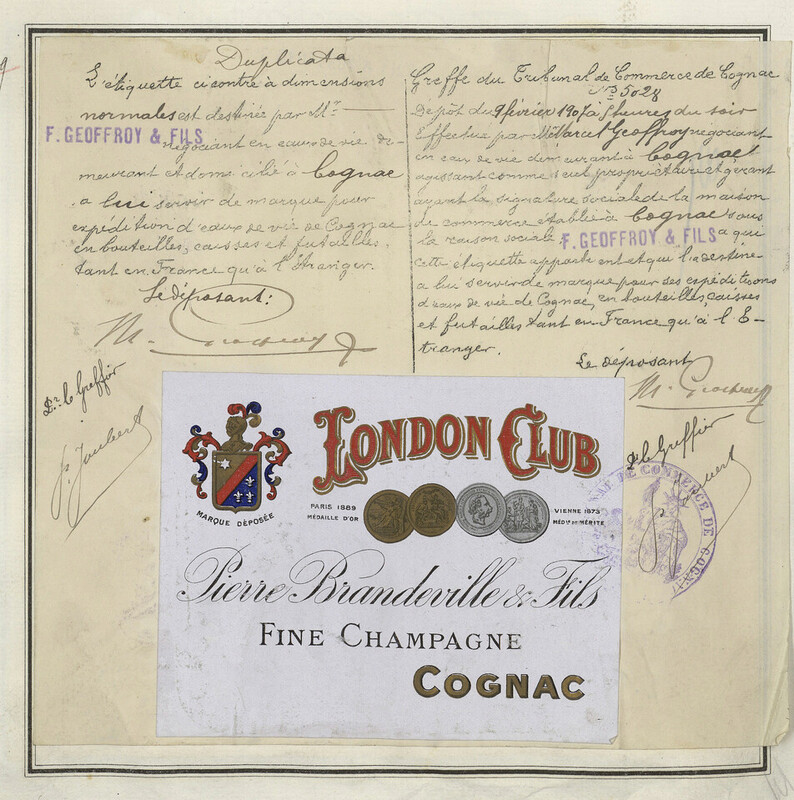 Duplicata
L'étiquette ci contre à dimensions
normales est destinée par Mr
F. GEOFFROY & FILS
négociant en eaux de vie de-
meurant et domicilié à Cognac
a lui servir de marque pour
expédition d'eaux de vie de Cognac
en bouteilles, caisses et futailles,
tant en France qu'à l'Etranger.
Le déposant:
Le Greffier
J. Joubert
Greffe du Tribunal de Commerce de Cognac
No 5028
Dépôt du 9 février 1907 à heures du soir
Effectué par M Marcel Geoffroy négociant
en eaux de vie demeurant à Cognac
agissant comme seul propriétaire et gérant
ayant la signature sociale de la maison
de commerce établie à Cognac sous
la raison sociale F. GEOFFROY & FILS a qui
cette étiquette appartient et qui l'a destinée
a lui servir de marque pour ses expéditions
d'eaux de vie de Cognac, en bouteilles, caisses
et futailles tant en France qu'à l'E-
tranger.
Le déposant
Le Greffier
DE COMMERCE DE COGNAC
LONDON CLUB
MARQUE DÉPOSÉE
PARIS 1889
MÉDAILLE D'OR
VIENNE 1873
MÉDLE DE MÉRITE
Pierre Brandeville & Fils
FINE CHAMPAGNE
COGNAC